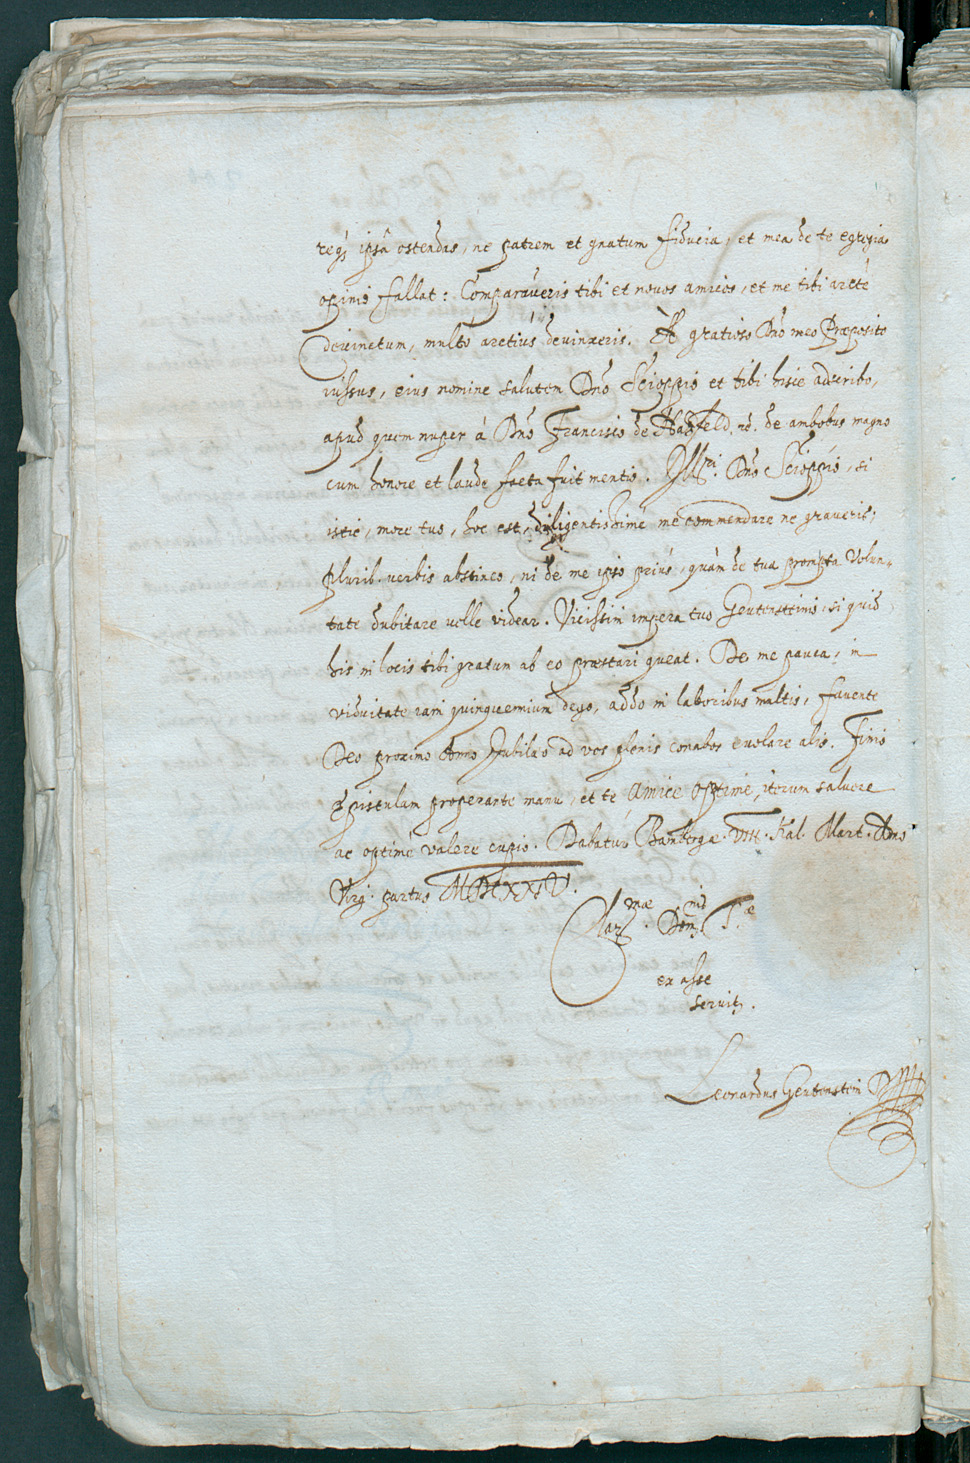 reqꝫ ipsâ ostendas, ne patrem et gnatum fiducia, et mea de te egregia
opinio fallat: Comparaveris tibi et novos amicos, et me tibi arctè
devinctum, multò arctiùs devinxeris. A gratioso Dnō meo Præposito
iussus, eius nomine salutem Dnō Scioppio et tibi hisce adscribo,
apud quem nuper à Dnō Francisco de Hatzfeld. de ambobus magno
cum honore et laude facta fuit mentio. Dno Scioppio, si
istic, more tuo, hoc est, diligentissimè me commendare ne graveris;
plurib. verbis abstineo, ni de me ipso priùs, quàm de tua prompta Volun-
tate dubitare velle videar. Vicissim impera tuo Geutensteinio, si quid
his in locis tibi gratum ab eo præstari queat. De me pauca, in
viduitate iam quinquennium dego, addo in laboribus multis, favente
Deo proximo Anno Jubilæo ad vos plenis conabor evolare alis. Finio
Epistulam properante manu, et te Amice optime, iterum salvere
ac optimè valere cupio. Dabatur Bambergæ. VIII. Kal. Mart. Ano
Virg. partus MDCXXIV.
Clar.mæ Dom.nis T.æ
ex asse
servitꝫ.
Leonardus Geutenstein